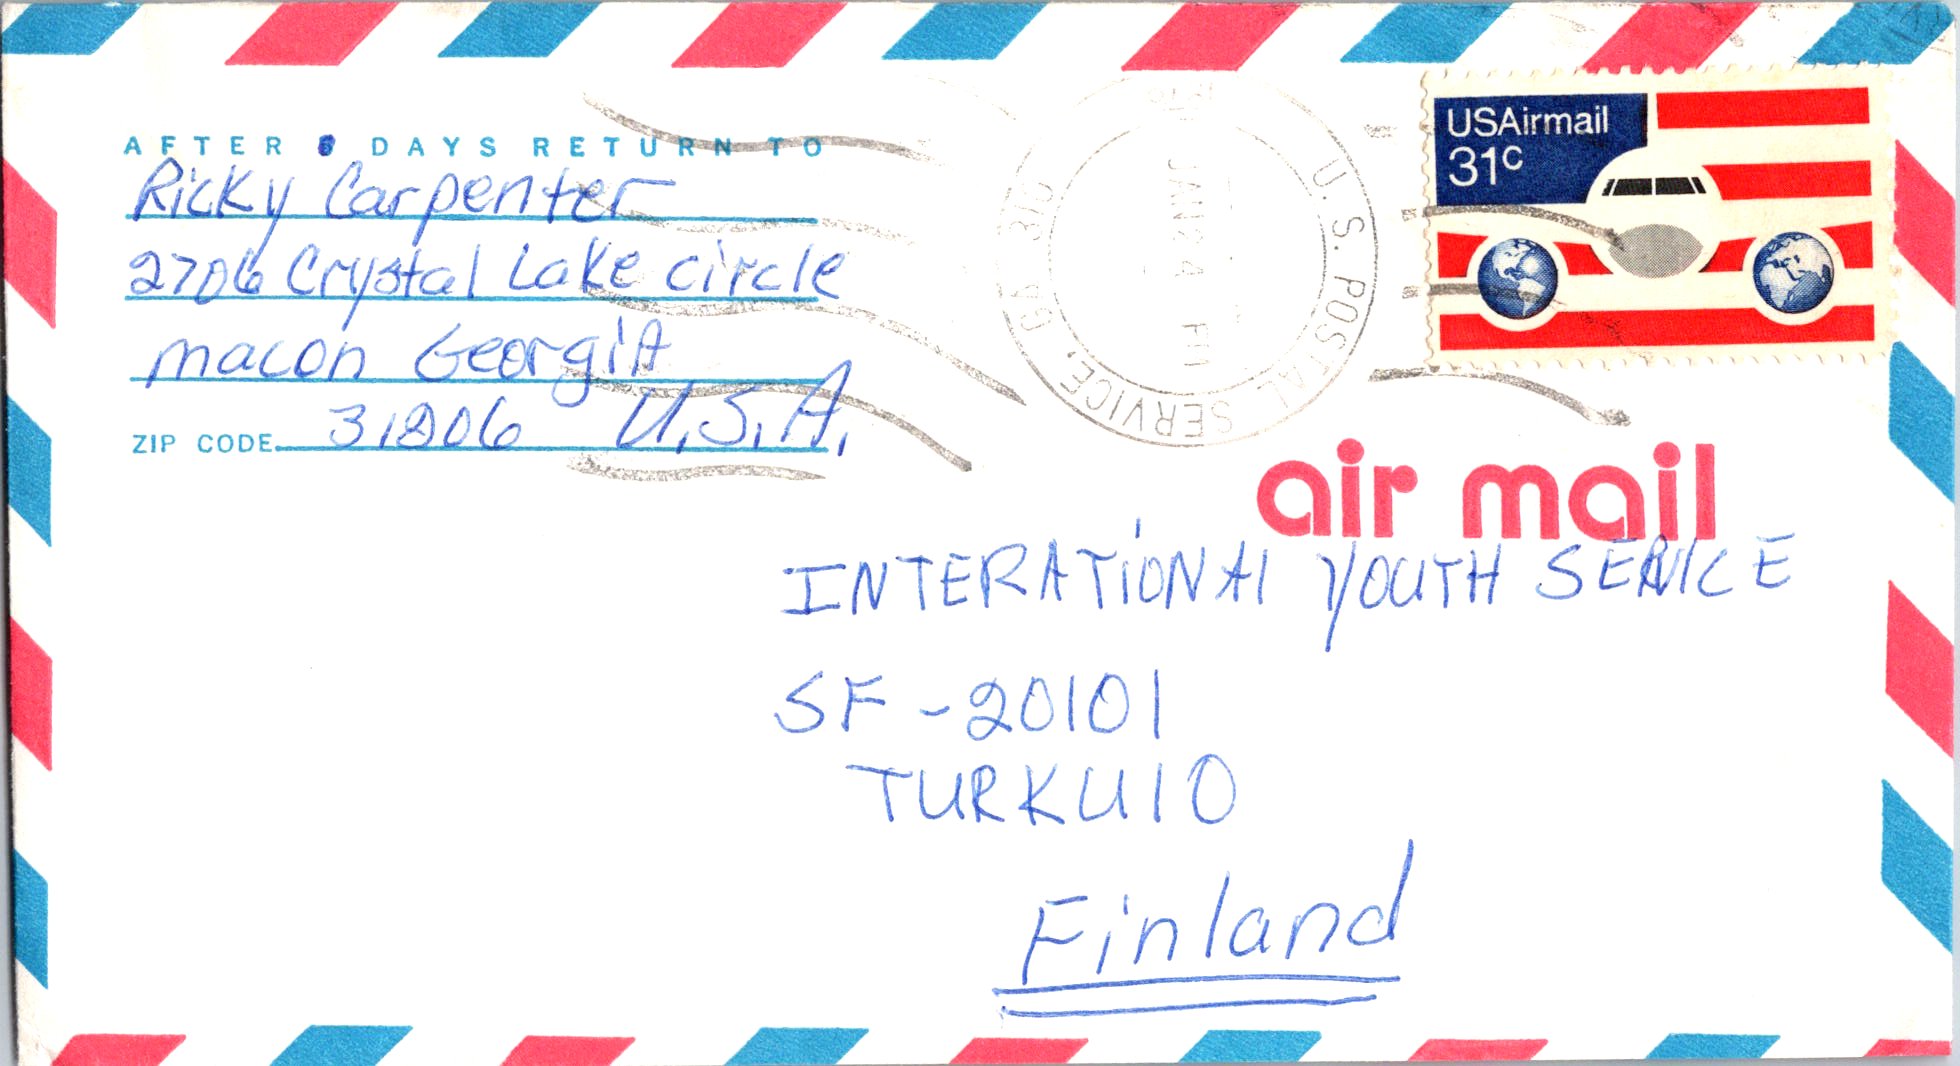 AFTER 5 DAYS RETURN TO
Ricky Carpenter
2706 Crystal Lake circle
macon GeorgiA
31206 U.S.A.
ZIP CODE
U.S. POSTAL SERVICE, GA 310
JAN 24
PM
USAirmail
31c
air mail
INTERATiONAl YOUTH SERVICE
SF-20101
TURKU10
Finland